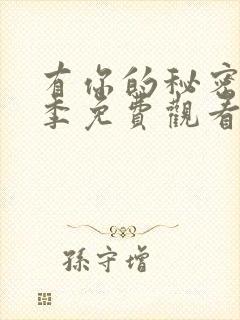 有你的秘密
季免費觀看
孫守增